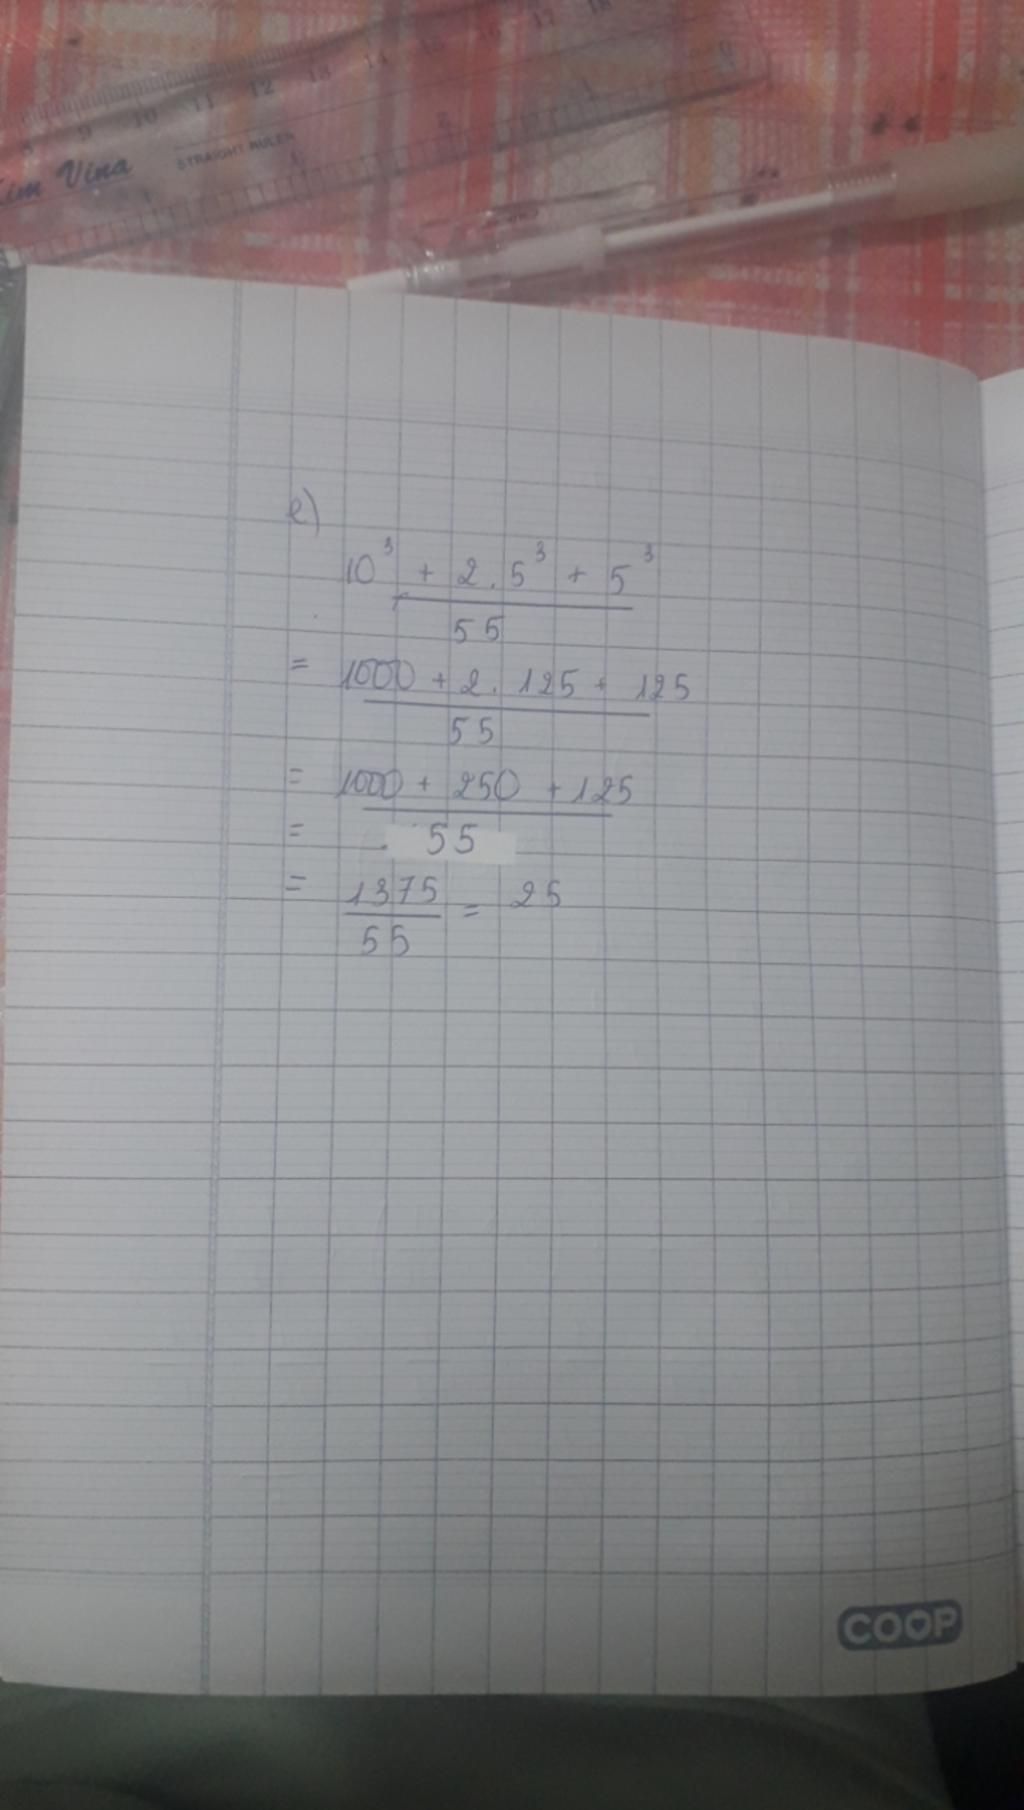 8 9 10 11 12 13 14 15 16 17 18
Kim Vina STRAIGHT RULER
e)
10³ + 2. 5³ + 5³
55
= 1000 + 2. 125 + 125
55
= 1000 + 250 + 125
= 55
= 1375 = 25
55
COOP